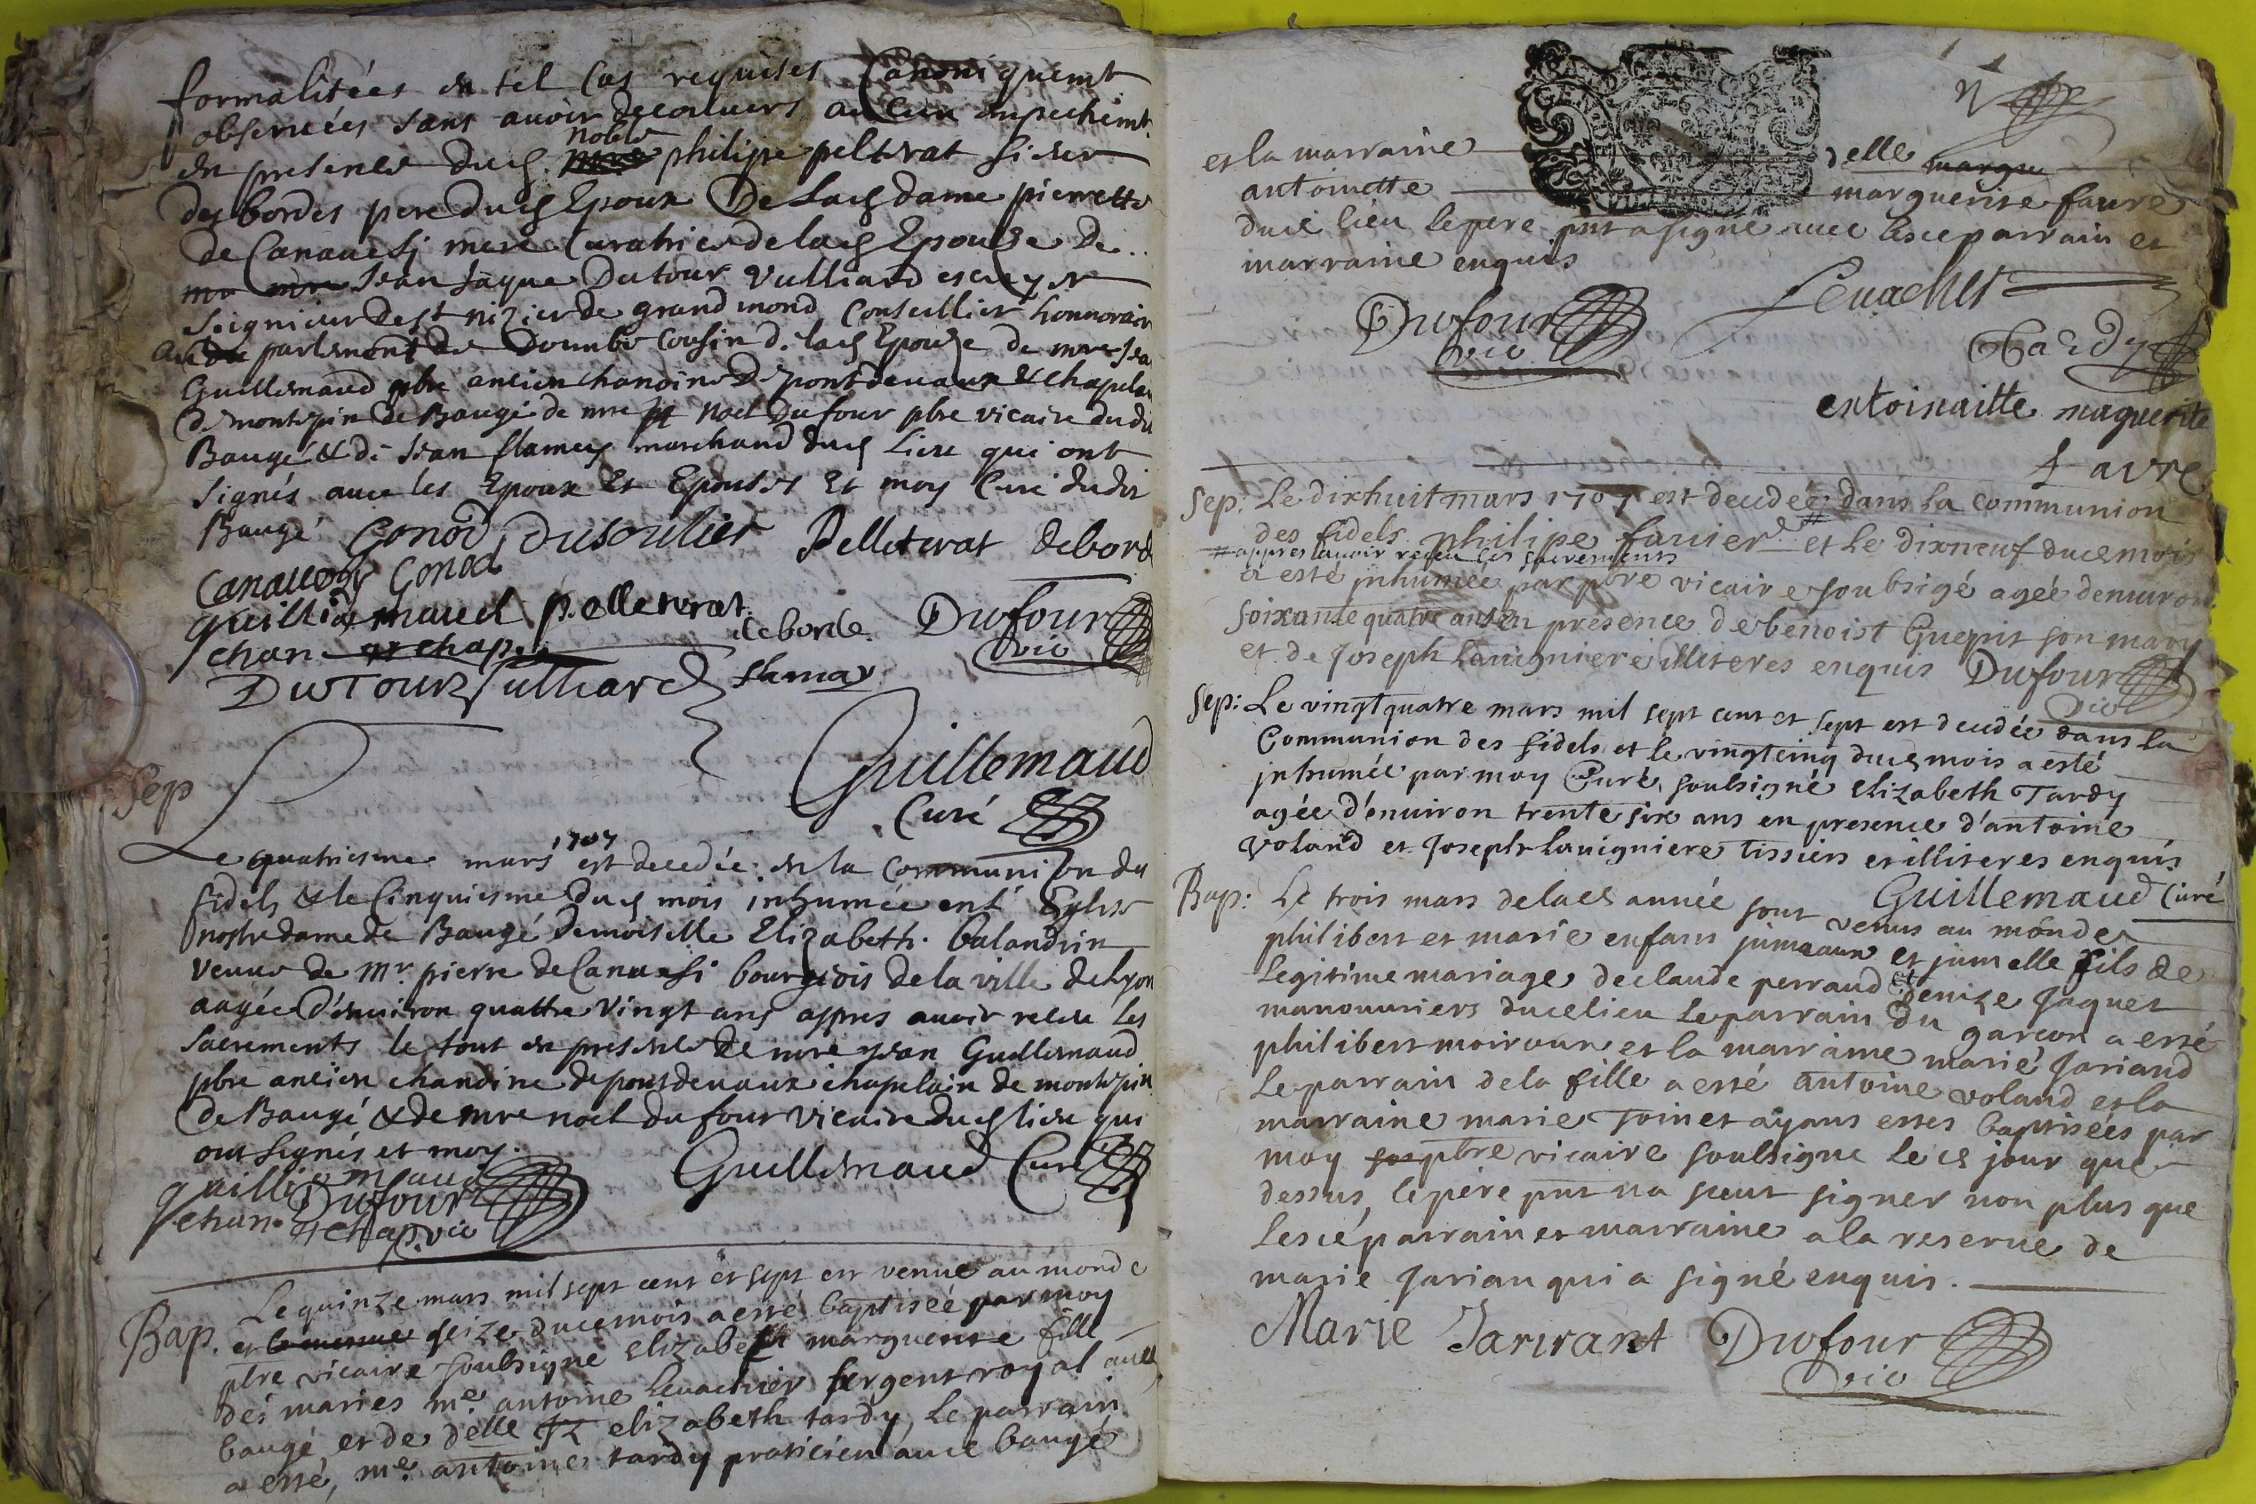 formalitées en tel cas requises Canoniquemt
observées sans avoir decouvers aucun empechemt
noble
en presence dud. philipe pelterat sieur
des bordes pere dud Epoux De Lad dame pierrette
de Canavesj mere Curatrice de lad Epouse De
Jean Jaque Dutour Vulliard escuyer
seigneur de st nizier de grand mond Conseillier honnoraire
au parlement de Dombe Cousin d. lad Epouse de mre Jea
Guillemaud pbre ancien chanoine De pontdevaux & chapelai
de montepin de Baugé de mre Noel Dufour pbre vicaire dudi
Baugé & de Jean flamey marchand dud Lieu qui ont
signés avec les Epoux Et Epouses Et moy Curé dudit
Baugé Gonod Dusoulier Pelleterat debord
Canavesy Gonod
guilliemaud p.elleterat
deborde Dufour
chan et chap. vic
DuTour Vulliard flamay
Guillemaud
Sep
Curé
1707
Le quatriesme mars est decedée en la Communion des
fidels & le Cinquiesme dud mois inhumée en l'Eglise
nostre dame de Baugé Demoiselle Elizabeth balandrin
veuve de Mr pierre de Canavesi bourgeois de la ville de Lyon
aagée d'environ quattre vingt ans appres avoir receu les
sacrements le tout en presence de mre jean Guillemaud
pbre ancien chanoine de pontdevaux chapelain de montepin
de Baugé & de mre noel du four vicaire dud lieu qui
ont signés et moy.
guilliemaud Guillemaud Curé
Dufour
chan. et chap. vic
Le quinze mars mil sept cent et sept est venue au monde
Bap. et le mesme seize duce mois a esté baptisée par moy
ptre vicaire soubsigné Elizabeth marguerite fille
des maries me. antoine Levachier sergent royal aud
baugé et de delle elizabeth tardy, Le parrain
a esté, me. antoine tardy praticien aud baugé
et la marraine delle margue
antoinette marguerite favre
duce lieu le pere pnt a signé avec lesce parrain et
marraine enquis
Dufour Levacher
vic
Tardy
entoinaitte maguerite
favre
Sep: Le dixhuit mars 1707 est decedée # dans la communion
des fidels philipe favier et le dixneuf duce mois
# appres avoir receu les sacrements
a esté jnhumée par pbre vicaire soubsigé agée denviron
soixante quatre ans en presence de benoist Guepit son mary
et de Joseph Lavigniere illiteres enquis Dufour
vic
Sep: Le vingtquatre mars mil sept cent et sept est decedée dans la
Communion des fidels et le vingtcinq dud mois a esté
jnhumée par moy Curé soubsigné Elizabeth Tardy
agée d'environ trente six ans en presence d'antoine
voland et Joseph Lavigniere tissiers et illiteres enquis
Guillemaud Curé
Bap: Le trois mars delace année sont venus au monde
philibert et marie enfans jumeaux et jumelle fils de
legitime mariage declaude perraud et denize Jaquet
manouvriers ducelieu Le parrain du garcon a esté
philibert moiroux et la marraine marie Jariand
Le parrain de la fille a esté antoine voland et la
marraine marie Joinet ayans estes baptisées par
moy ptre vicaire soubsigne Le ce jour que
dessus, le pere pnt na sceut signer non plus que
Lescé parrain et marraine a la reserve de
marie Jarian qui a signé enquis.
Marie Jarirant Dufour
vic